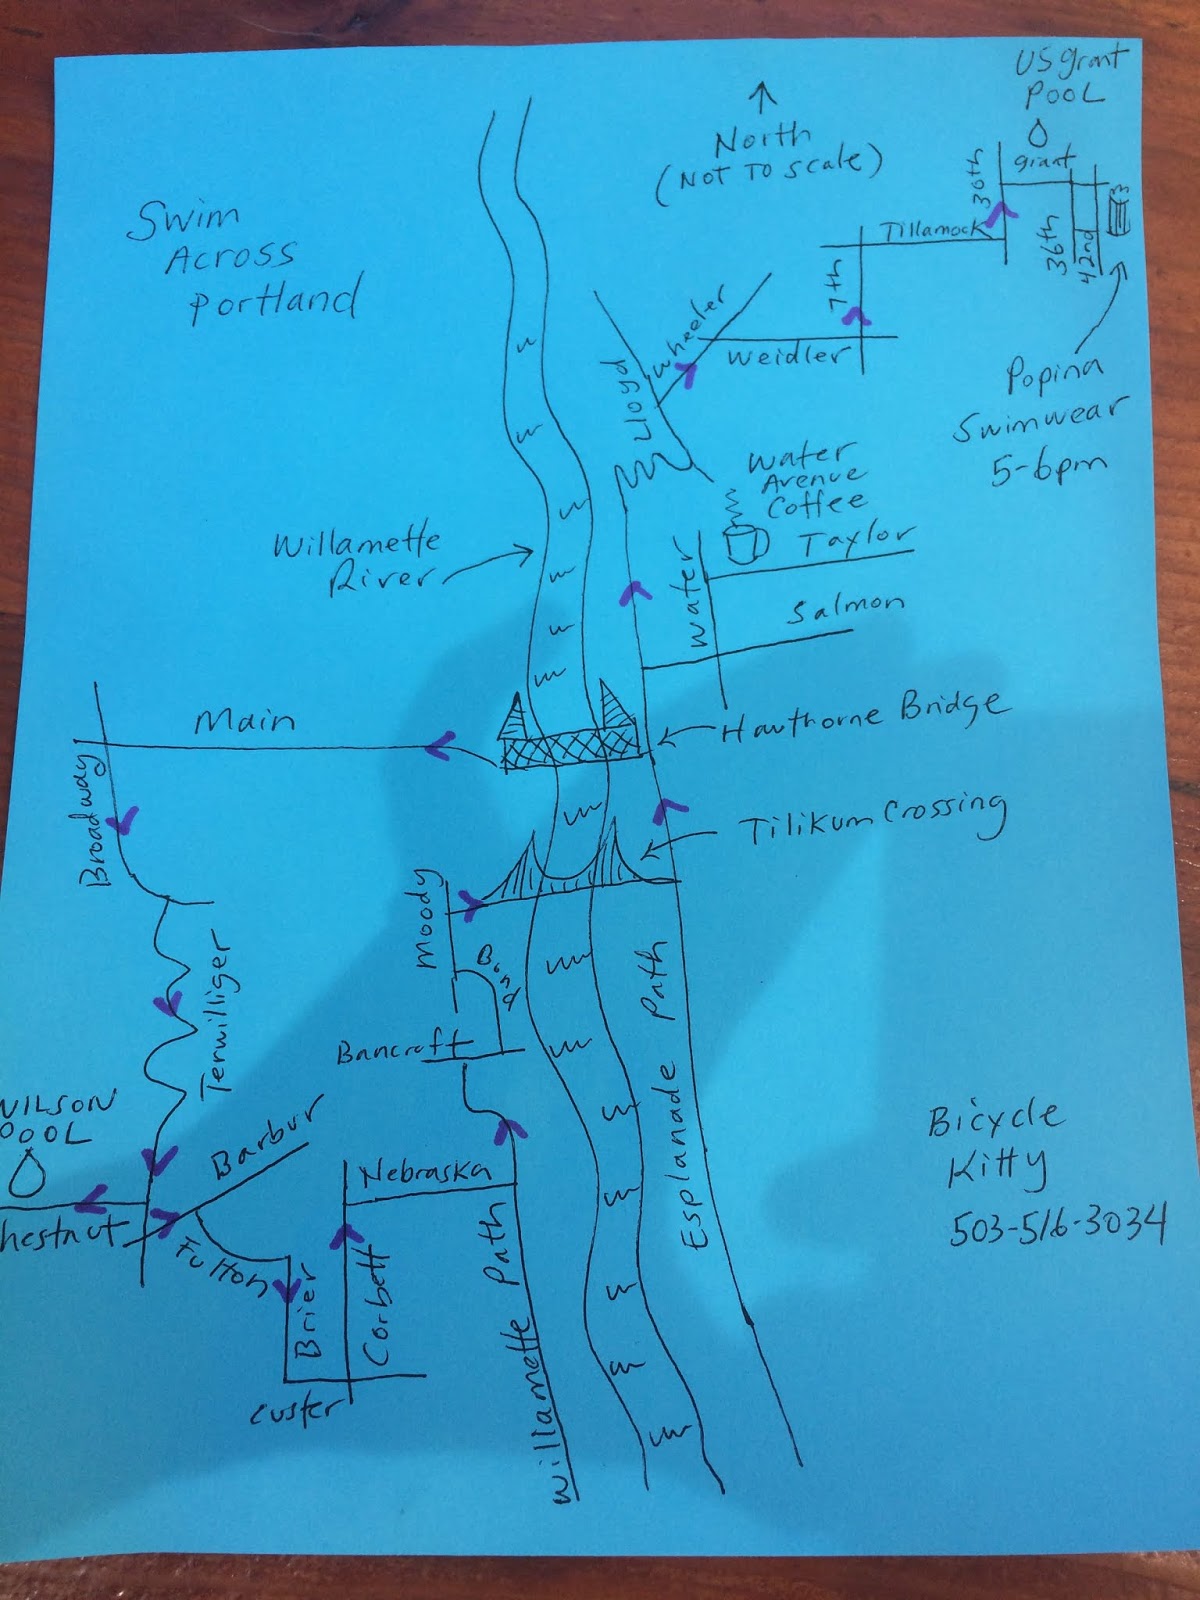 US grant
POOL
North
(NOT TO SCALE)
Swim
Across
Portland
30th
grant
36th
42nd
Tillamock
7th
Wheeler
Weidler
Lloyd
Popina
Swimwear
5-6pm
Water
Avenue
Coffee
Taylor
Willamette
River
Water
Salmon
Main
Hawthorne Bridge
Broadway
Tilikum Crossing
Moody
Bond
Bancroft
Terwilliger
Esplanade Path
WILSON
POOL
Barbur
Nebraska
Bicycle
Kitty
503-516-3034
hestnut
Fulton
Brier
Corbett
Willamette Path
Custer